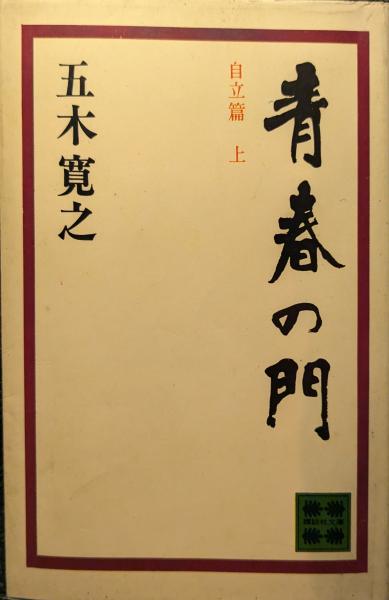 青春の門
自立篇 上
五木寛之
講談社文庫